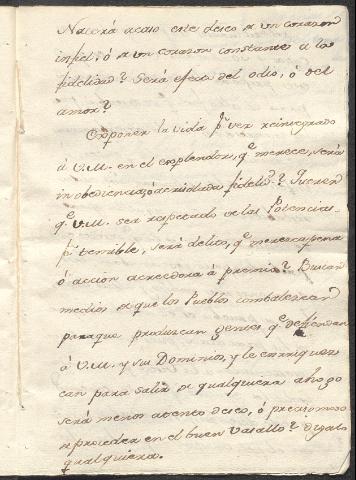 Nacerá acaso este deseo de un corazon
infiel, ó de un corazon constante a la
fidelidad? Será efecto del odio, ó del
amor?
Exponer la vida pr. ver reintegrado
á V.M. en el esplendor, qe. merece, será
inobediencia, ó acrisolada fidelidd.? Querer
qe. V.M. sea respetado de las Potencias
pr. temible, será delito, qe. merezca pena
ó acción acreedora á premio? Buscar
medios de que los Pueblos combalezcan
para que produzcan gentes qe. defiendan
á V.M. y sus Dominios, y le enriquez
can para salir de qualquiera ahogo
será menos atento deseo, ó preciso modo
de proceder en el buen Vasallo? digalo
qualquiera.